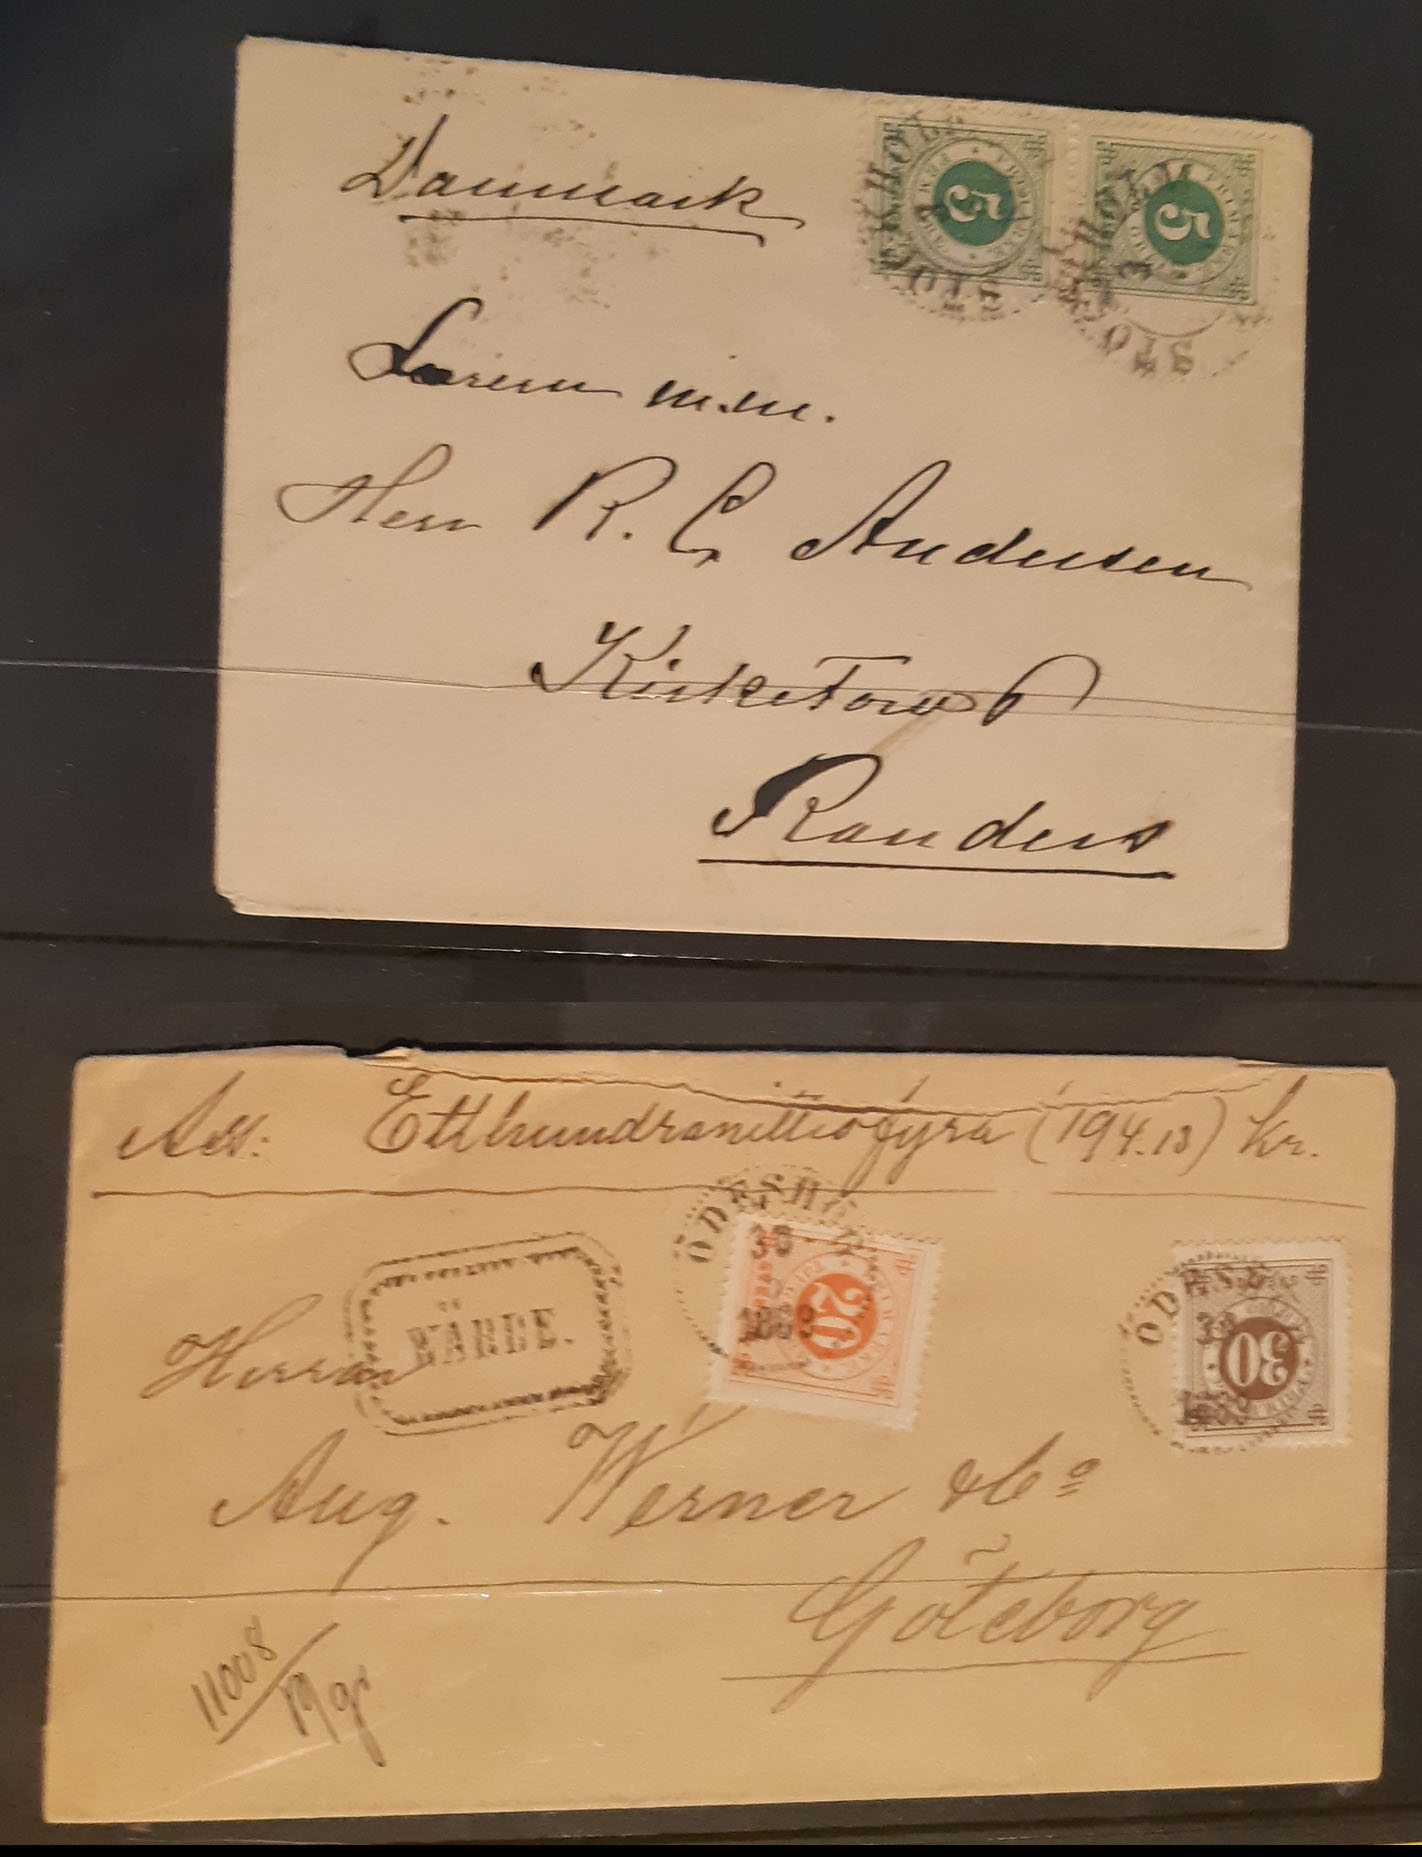 Danmark
5
5
STOCKHOLM
Herr R. C Andersen
Kirketorv 6
Randers
Ass: Etthundranittiofyra (194.13) kr.
ÖDESHÖG
30
1889
20
30
WÄRDE.
Herrar
Aug. Werner & Co
Göteborg
11008
19 gr